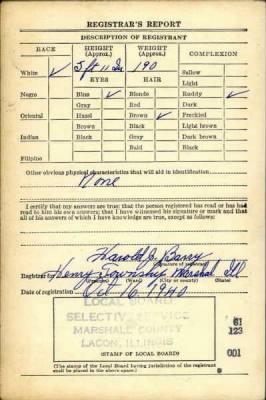 REGISTRAR'S REPORT
DESCRIPTION OF REGISTRANT
RACE HEIGHT (Approx.) WEIGHT (Approx.) COMPLEXION
5 ft 11 in 190 Sallow
White ✓ EYES HAIR Light
Negro Blue ✓ Blonde Ruddy ✓
Gray Red Dark
Oriental Hazel Brown ✓ Freckled
Brown Black Light brown
Indian Black Gray Dark brown
Bald Black
Filipino
Other obvious physical characteristics that will aid in identification
None
I certify that my answers are true; that the person registered has read or has had
read to him his own answers; that I have witnessed his signature or mark and that
all of his answers of which I have knowledge are true, except as follows:
Harold J. Barry
(Signature of registrar)
Registrar for Henry Township Marshal Ill
(Precinct) (Ward) (City or county) (State)
Date of registration Oct 16, 1940
LOCAL BOARD
SELECTIVE SERVICE
MARSHALL COUNTY
LACON, ILLINOIS
61
123
001
(STAMP OF LOCAL BOARD)
(The stamp of the Local Board having jurisdiction of the registrant
shall be placed in the above space.)